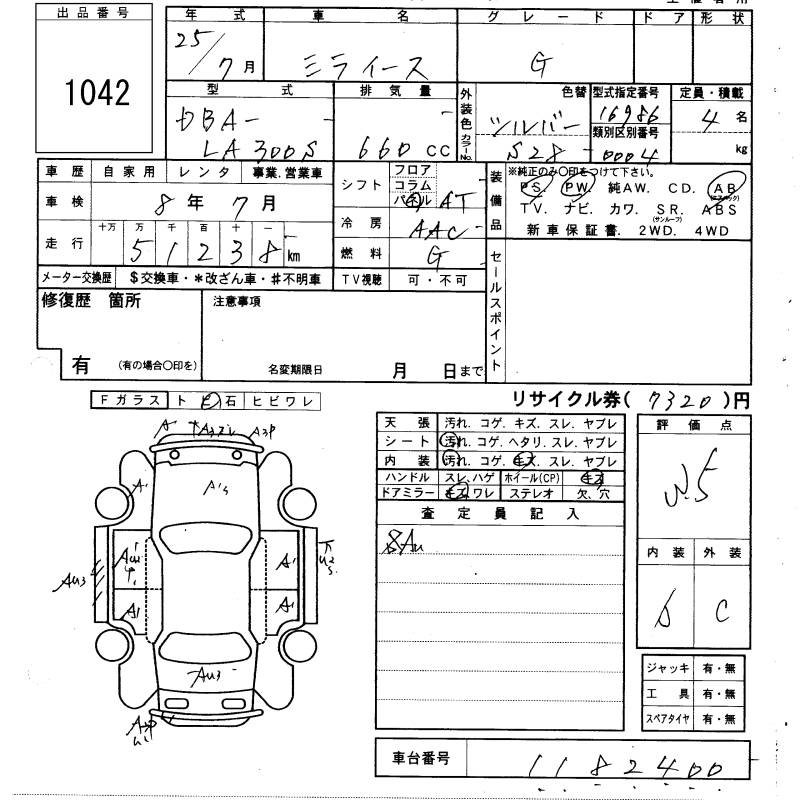 出品番号
1042
年 式
25/7月
車 名
ミライース
グレード
G
ドア
形状
型 式
DBA-
LA300S
排気量
660 CC
外装色 カラーNo.
色替
シルバー
S28
型式指定番号
16986
類別区別番号
0004
定員・積載
4 名
kg
車歴 自家用 レンタ 事業.営業車
車検 8年 7月
走行 十万 万 千 百 十 一
51238 km
メーター交換歴 $交換車・*改ざん車・#不明車
シフト フロア コラム パネル AT
冷房 AAC
燃料 G
TV視聴 可・不可
装備品
※純正のみ〇印をつけて下さい。
PS. PW. 純AW. CD. AB(エアバック)
TV. ナビ. カワ. SR.(サンルーフ) ABS
新車保証書. 2WD. 4WD
セールスポイント
修復歴 箇所
有 (有の場合〇印を)
注意事項
名変期限日 月 日まで
Fガラス ト ビ 石 ヒビワレ
リサイクル券( 7320 )円
天張 汚れ. コゲ. キズ. スレ. ヤブレ
シート 汚れ. コゲ. ヘタリ. スレ. ヤブレ
内装 汚れ. コゲ. キズ. スレ. ヤブレ
ハンドル スレ.ハゲ ホイール(CP) キズ
ドアミラー キズ.ワレ ステレオ 欠、穴
査定員記入
評価点
内装 外装
C
ジャッキ 有・無
工具 有・無
スペアタイヤ 有・無
A
A3P
A'
A'
A'
A'
A'
Au3
Au3
車台番号 1182400